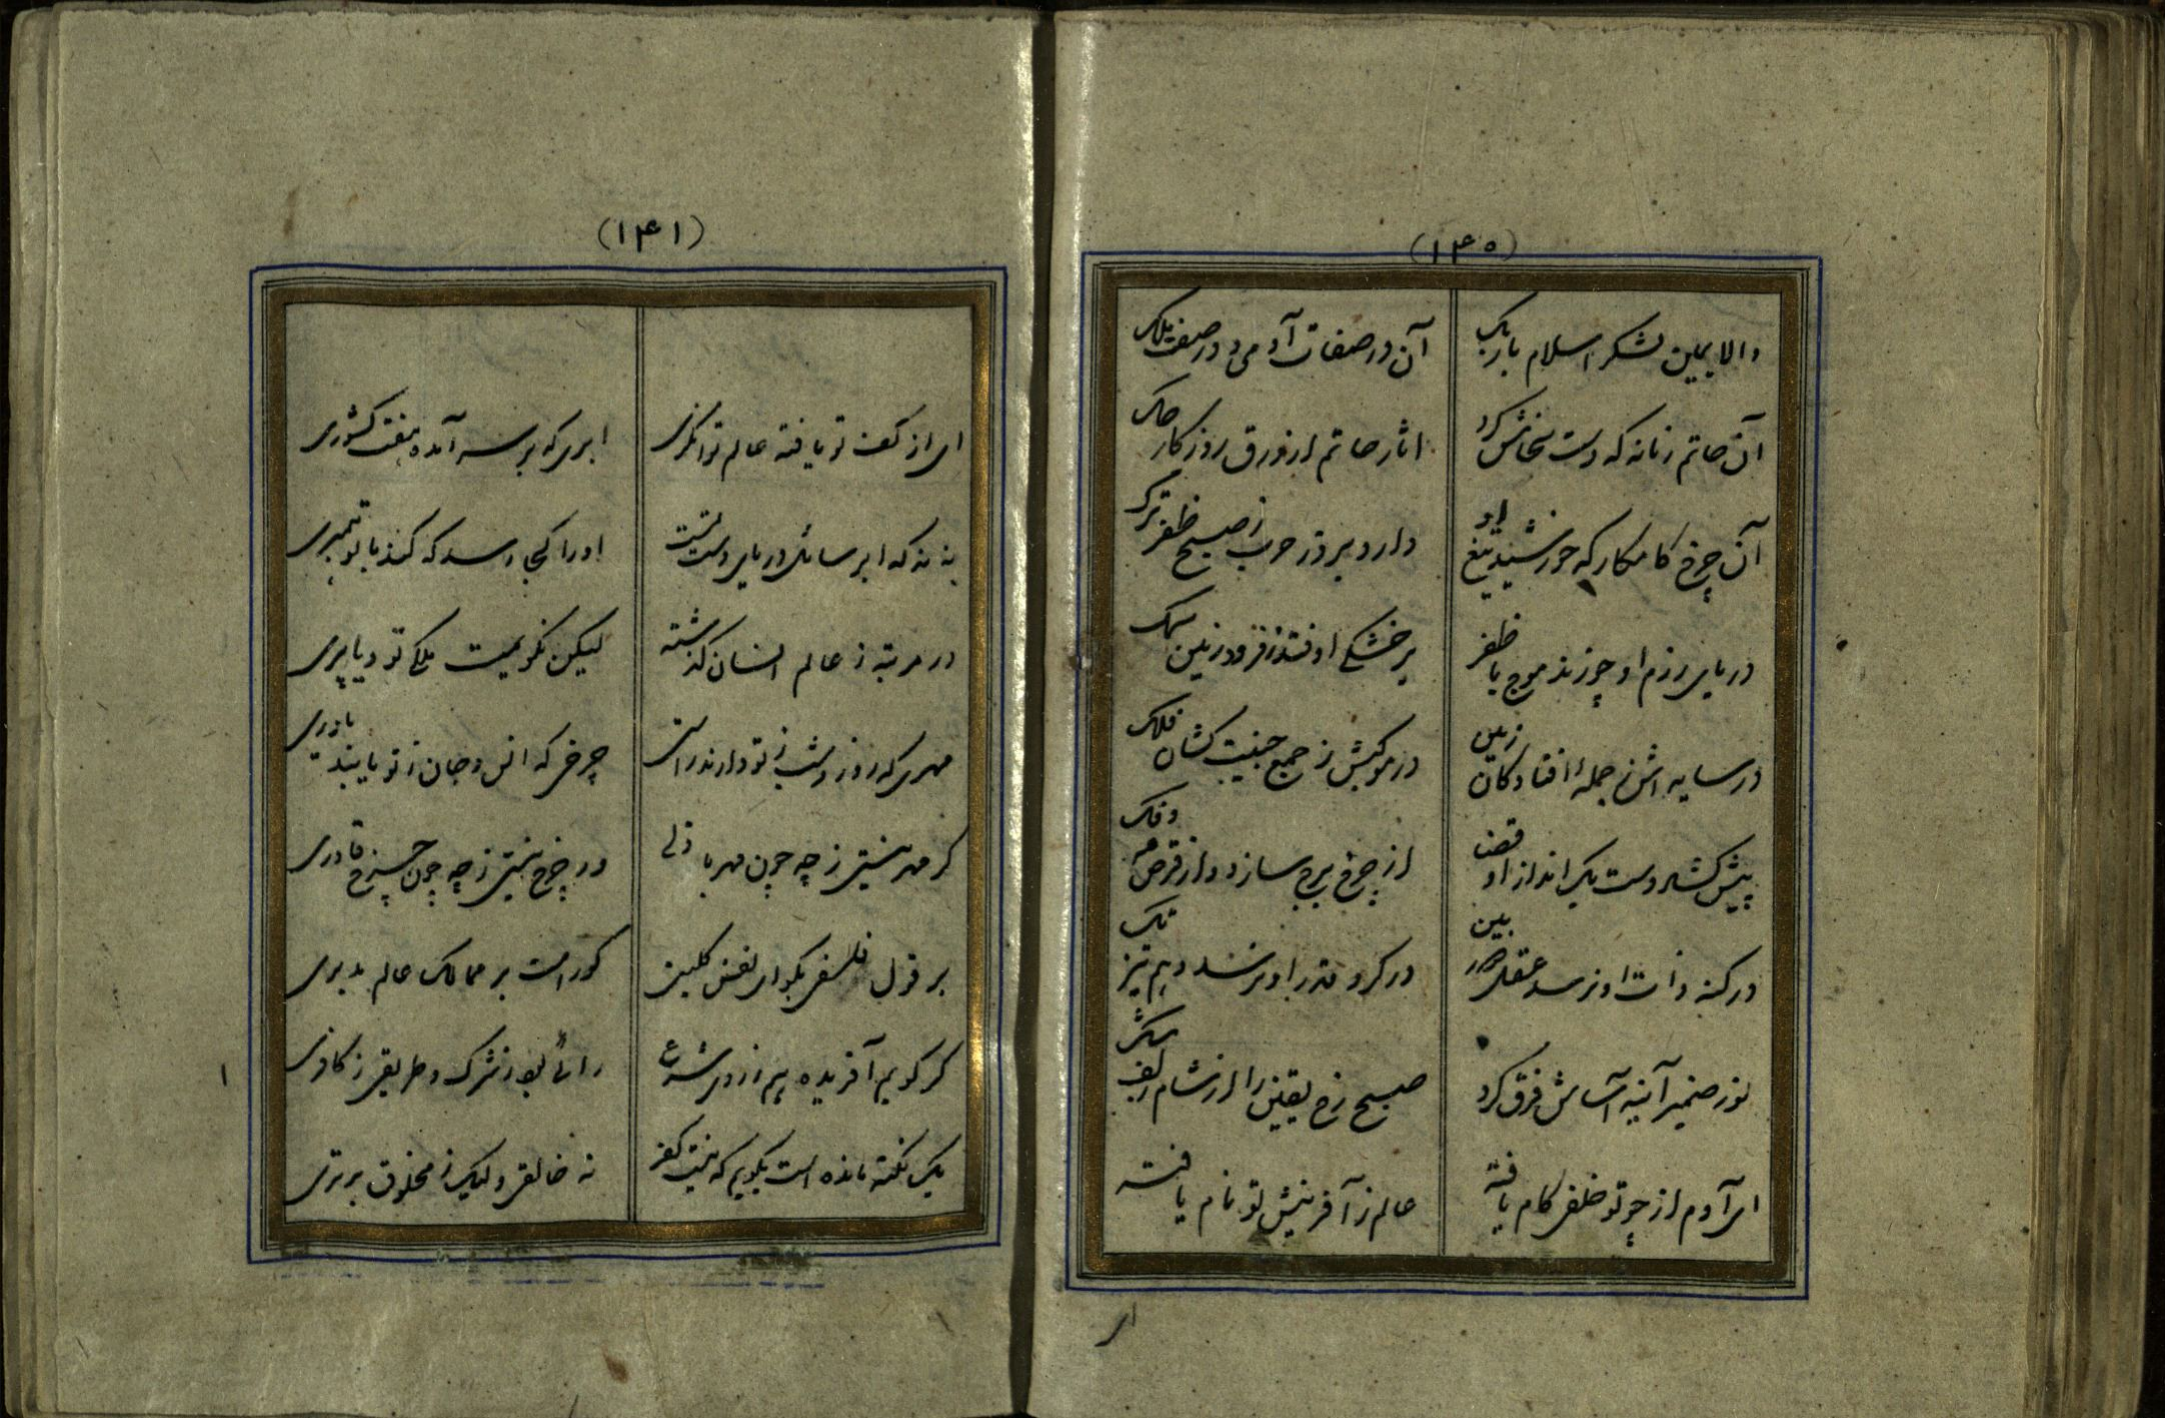 (۱۴۰)
والا یمین لشکر اسلام باربک
آن در صفات آدمی و در صفت ملک
آن حاتم زمانه که دست سخاش کرد
اثار حاتم از ورق روزکار حک
آن چرخ کامکار که خورشید تیغ او
دارد بروز حرب ز صبح ظفر یزک
دریای رزم او چو زند موج با ظفر
بر خشکی اوفتد ز فرود زمین سمک
در سایه اش ز جملهٔ افتادکان زمین
در موکبش ز جمع جنیبت کشان فلک
پیش کشاد دست یک انداز او قضا
از چرخ برج سازد و از قرص مه
در کنه ذات او نرسد عقل بین
در کرد قدر او نرسد وهم تیز تک
نور ضمیر آینه آساش فرق کرد
صبح رخ یقین را از شام زلف شک
ای آدم از چو تو خلفی کام یافته
عالم ز آفرینش تو نام یافته
ای
(۱۴۱)
ای از کف تو یافته عالم توانکری
ابری که بر سر آمده هفت کشوری
نه نه که ابر سائل دریای دست تست
او را کجا رسد که کند با تو همبری
در مرتبه ز عالم انسان گذشته
لیکن نکویمت ملکی تو و یا پری
مهری که روز و شب ز تو دارند راستی
چرخی که انس و جان ز تو یابند یاوری
کر مهر نیستی ز چه چون مهر باذلی
ور چرخ نیستی ز چه چون چرخ قادری
بر قول فلسفی بکو ای نفس کلیت
کوراست بر ممالک عالم مدبری
کر کویم آفریده هم از روی شرع
رائی بود ز شرک و طریقی ز کافری
یک نکته مانده است بکویم که نیست کفر
نه خالقی ولیک ز مخلوق برتری